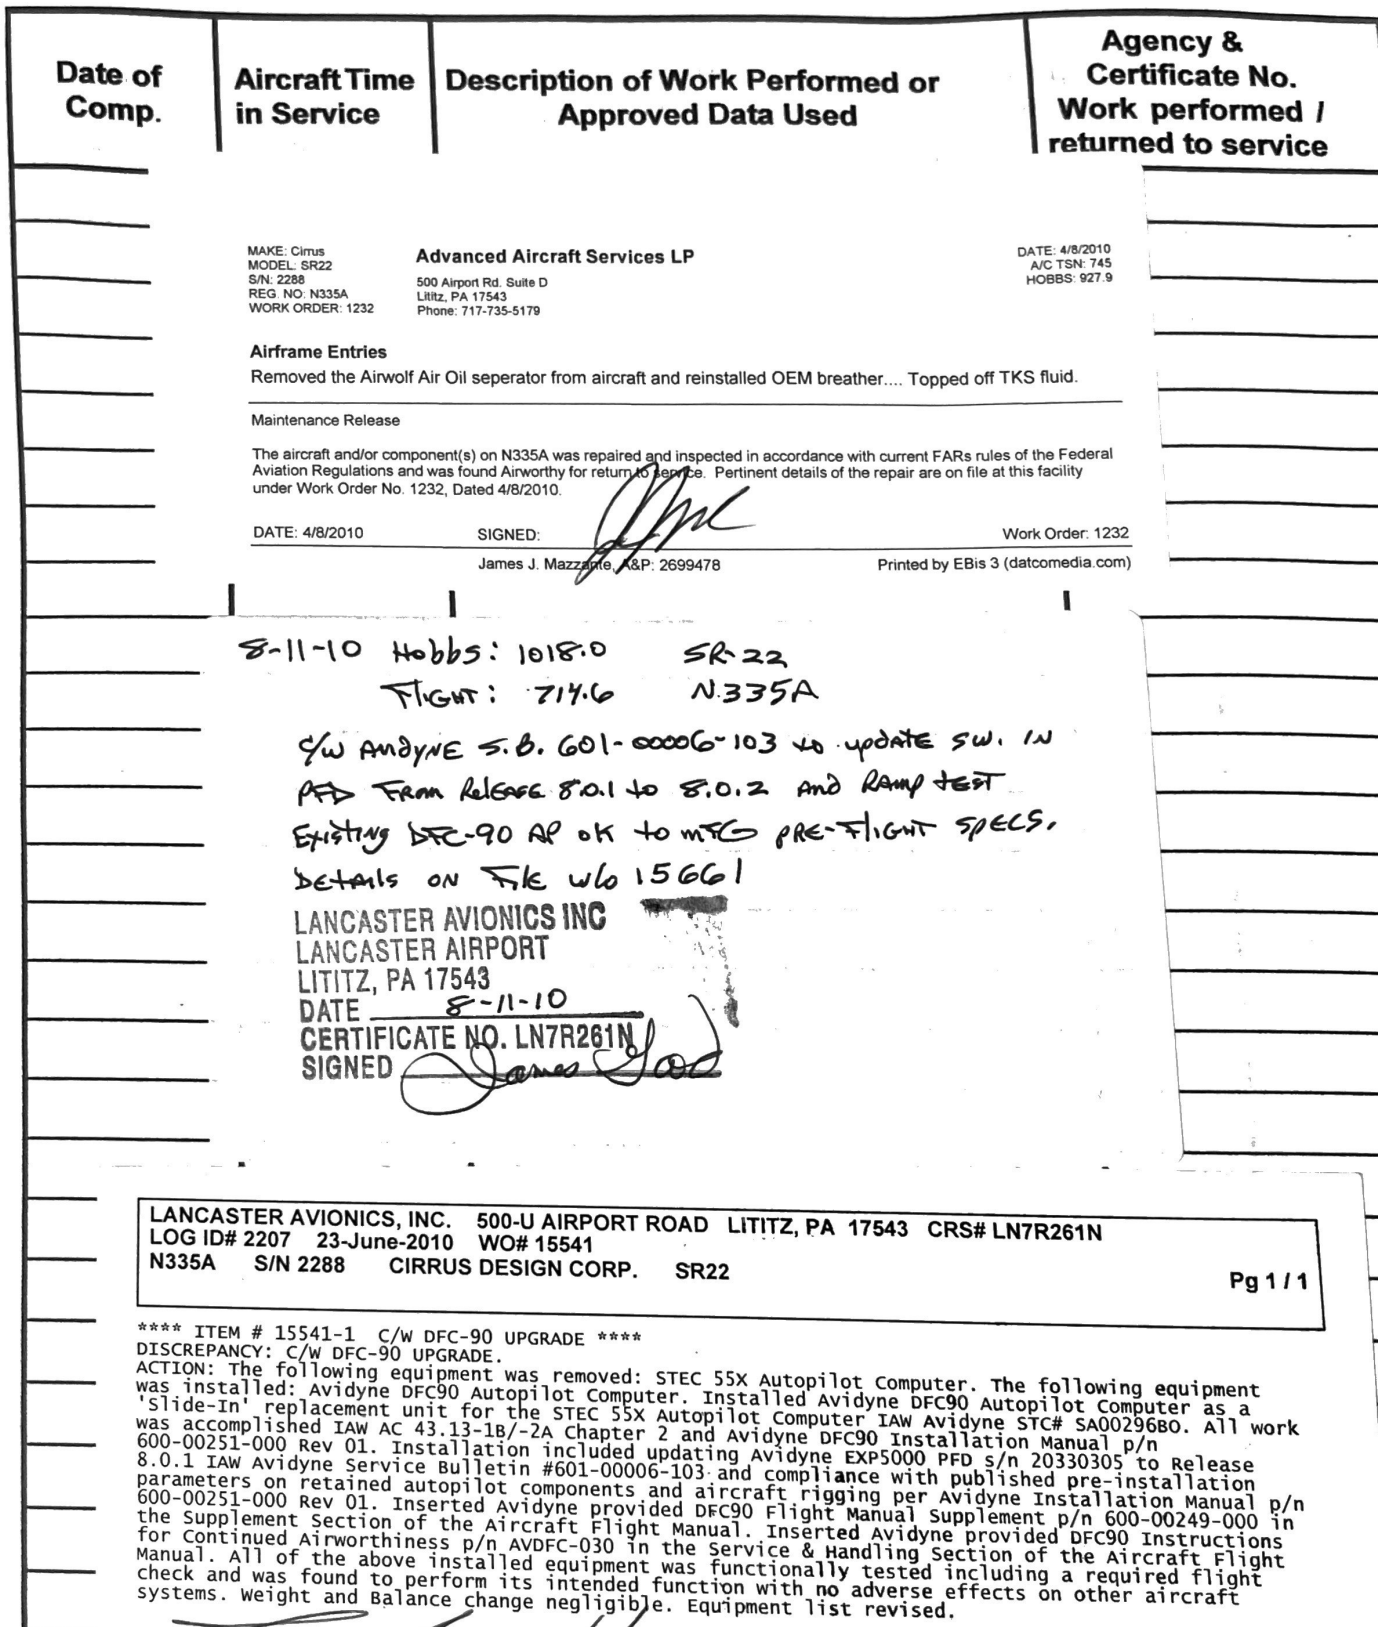 Date of
Comp.
Aircraft Time
in Service
Description of Work Performed or
Approved Data Used
Agency &
Certificate No.
Work performed /
returned to service
MAKE: Cirrus
MODEL: SR22
S/N: 2288
REG. NO: N335A
WORK ORDER: 1232
Advanced Aircraft Services LP
500 Airport Rd. Suite D
Lititz, PA 17543
Phone: 717-735-5179
DATE: 4/8/2010
A/C TSN: 745
HOBBS: 927.9
Airframe Entries
Removed the Airwolf Air Oil seperator from aircraft and reinstalled OEM breather.... Topped off TKS fluid.
Maintenance Release
The aircraft and/or component(s) on N335A was repaired and inspected in accordance with current FARs rules of the Federal
Aviation Regulations and was found Airworthy for return to service. Pertinent details of the repair are on file at this facility
under Work Order No. 1232, Dated 4/8/2010.
DATE: 4/8/2010 SIGNED: Work Order: 1232
James J. Mazzante, A&P: 2699478 Printed by EBis 3 (datcomedia.com)
8-11-10 Hobbs: 1018.0 SR-22
Flight: 714.6 N335A
C/W Avidyne S.B. 601-00006-103 to update SW. in
PFD From Release 8.0.1 to 8.0.2 and Ramp test
Existing DFC-90 AP ok to mfg pre-flight specs.
Details on File w/o 15661
LANCASTER AVIONICS INC
LANCASTER AIRPORT
LITITZ, PA 17543
DATE 8-11-10
CERTIFICATE NO. LN7R261N
SIGNED James Good
LANCASTER AVIONICS, INC. 500-U AIRPORT ROAD LITITZ, PA 17543 CRS# LN7R261N
LOG ID# 2207 23-June-2010 WO# 15541
N335A S/N 2288 CIRRUS DESIGN CORP. SR22
Pg 1 / 1
**** ITEM # 15541-1 C/W DFC-90 UPGRADE ****
DISCREPANCY: C/W DFC-90 UPGRADE.
ACTION: The following equipment was removed: STEC 55X Autopilot Computer. The following equipment
was installed: Avidyne DFC90 Autopilot Computer. Installed Avidyne DFC90 Autopilot Computer as a
'Slide-In' replacement unit for the STEC 55X Autopilot Computer IAW Avidyne STC# SA00296BO. All work
was accomplished IAW AC 43.13-1B/-2A Chapter 2 and Avidyne DFC90 Installation Manual p/n
600-00251-000 Rev 01. Installation included updating Avidyne EXP5000 PFD s/n 20330305 to Release
8.0.1 IAW Avidyne Service Bulletin #601-00006-103 and compliance with published pre-installation
parameters on retained autopilot components and aircraft rigging per Avidyne Installation Manual p/n
600-00251-000 Rev 01. Inserted Avidyne provided DFC90 Flight Manual Supplement p/n 600-00249-000 in
the Supplement Section of the Aircraft Flight Manual. Inserted Avidyne provided DFC90 Instructions
for Continued Airworthiness p/n AVDFC-030 in the Service & Handling Section of the Aircraft Flight
Manual. All of the above installed equipment was functionally tested including a required flight
check and was found to perform its intended function with no adverse effects on other aircraft
systems. Weight and Balance change negligible. Equipment list revised.